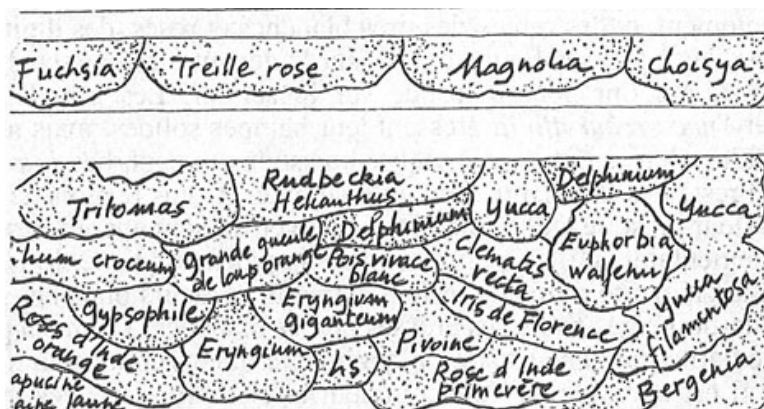 Fuchsia Treille rose Magnolia Choisya
Tritomas
Rudbeckia
Helianthus
Delphinium
Yucca
Delphinium
Yucca
lium croceum
grande gueule
de loup orange
Pois vivace
blanc
Clematis
recta
Euphorbia
walfenii
Yucca
filamentosa
Roses d'Inde
orange
gypsophile
Eryngium
Eryngium
giganteum
lis
Pivoine
Iris de Florence
Rose d'Inde
primevère
Bergenia
apucine
jaune